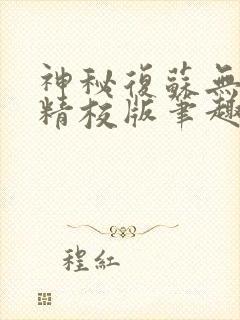 神秘復蘇無
精校版筆趣
程紅